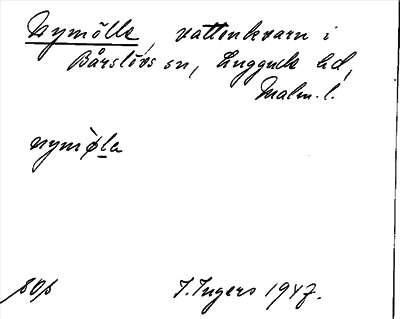 Nymölla, vattenkvarn i
Bårslövs sn, Luggude hd,
Malm. l.
nymø̀la
sop
I. Ingers 1947.